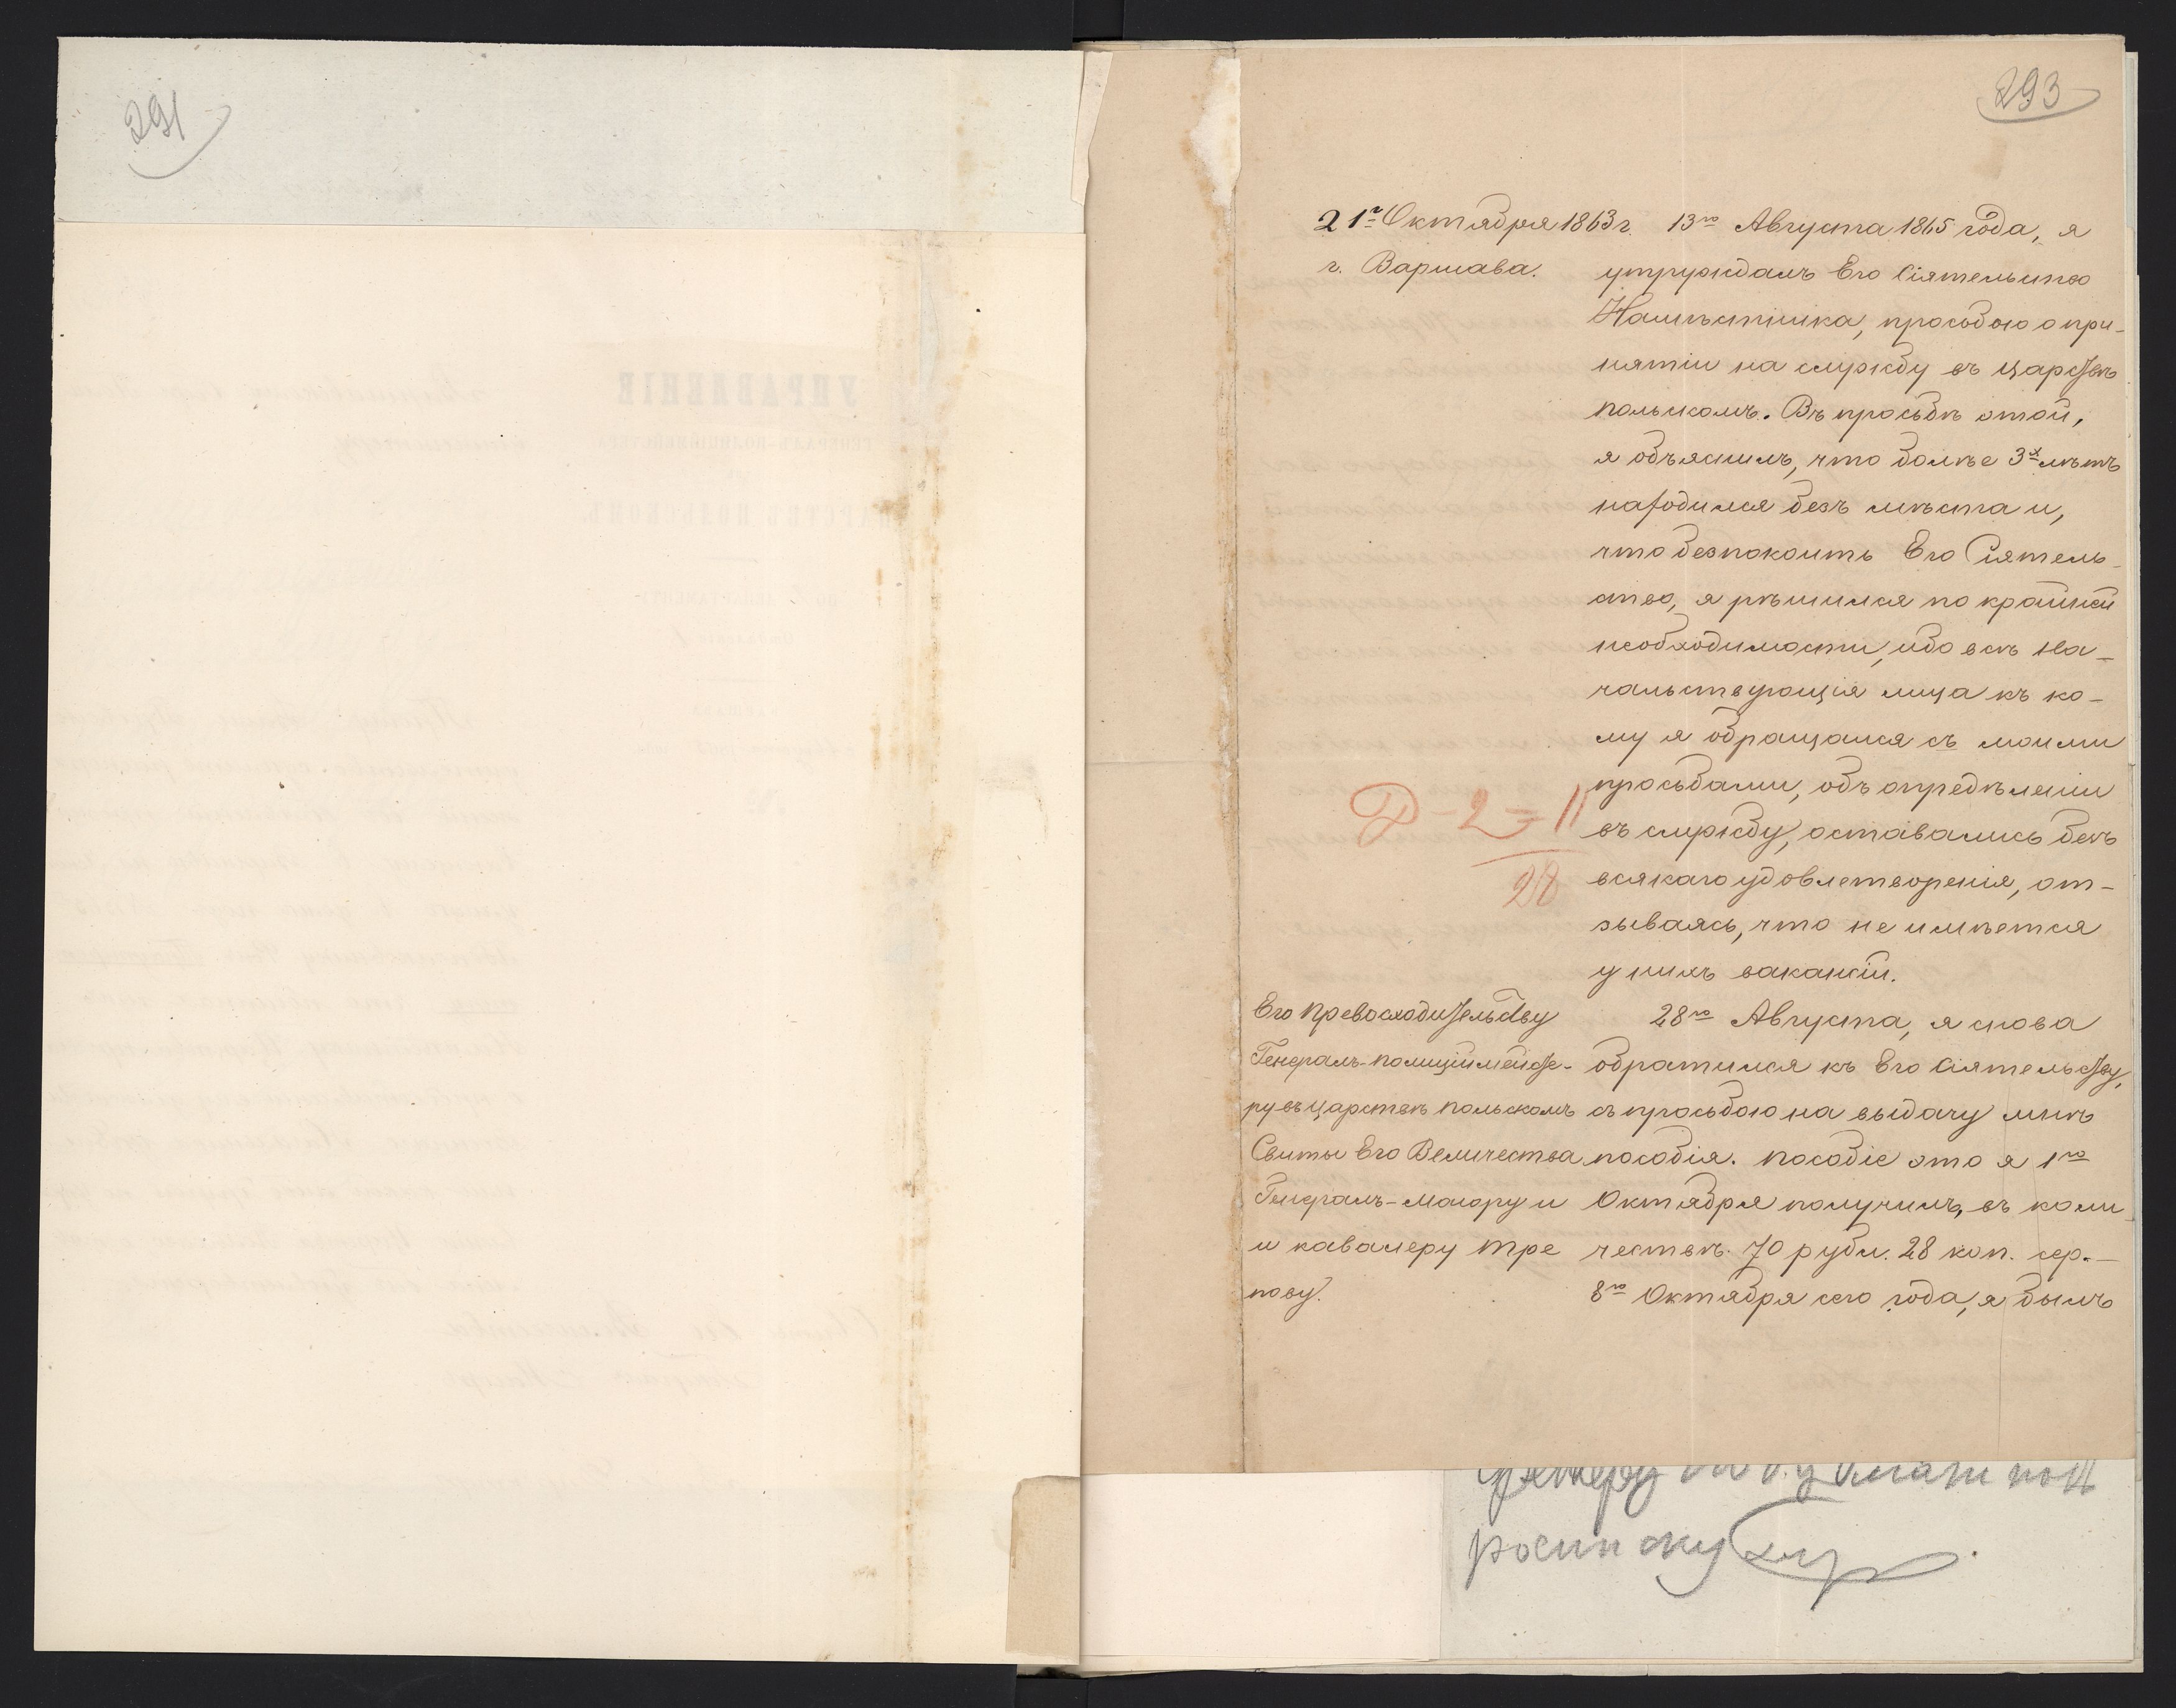 291
293
21го Октября 1863 г.
г. Варшава.
13го Августа 1865 года, я
утруждалъ Его Сіятельство
Намѣстника, прособою о при-
нятіи на службу въ царствѣ
польскомъ. Въ просьбѣ этой,
я объяснилъ, что болѣе 3х лѣтъ
находился безъ мѣста и,
что безпокоить Его Сіятель-
ство, я рѣшился по крайней
необходимости, ибо всѣ на-
чальствующія лица къ ко-
му я обращался съ моими
просьбами, объ опредѣленіи
въ службу, оставались безъ
всякаго удовлетворенія, от-
зываясь, что не имѣется
у нихъ вакансіи.
28го Августа, я снова
обратился къ Его Сіятельству,
съ просьбою на выдачу мнѣ
пособія. Пособіе это я 1го
Октября получилъ, въ коли-
чествѣ 70 рубл. 28 коп. сер.—
8го Октября сего года, я былъ
Р-2-11
28
Его превосходительству
Генералъ-полиціймейсте-
ру въ царствѣ польскомъ
Свиты Его Величества
Генералъ-маіору и
и кавалеру Тре
пову.